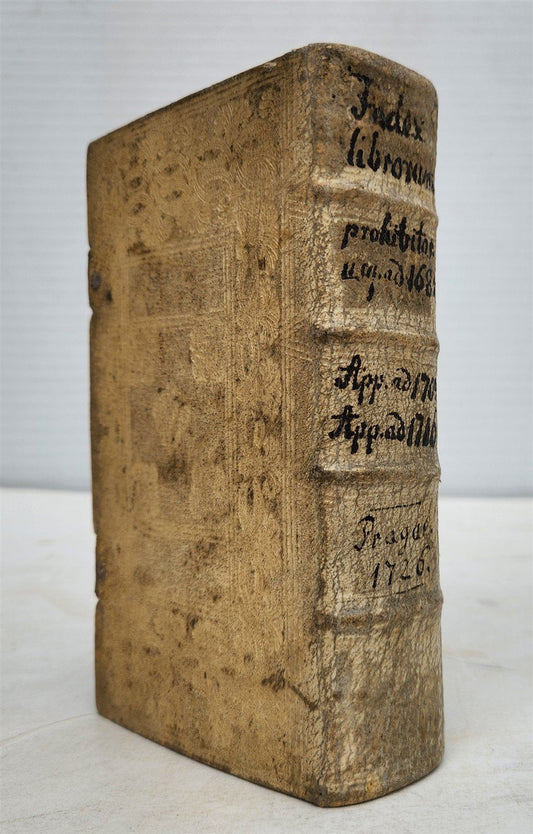 Index
librorum
prohibitor
usq. ad 168
App. ad 170
App. ad 1716
Pragae.
1726.